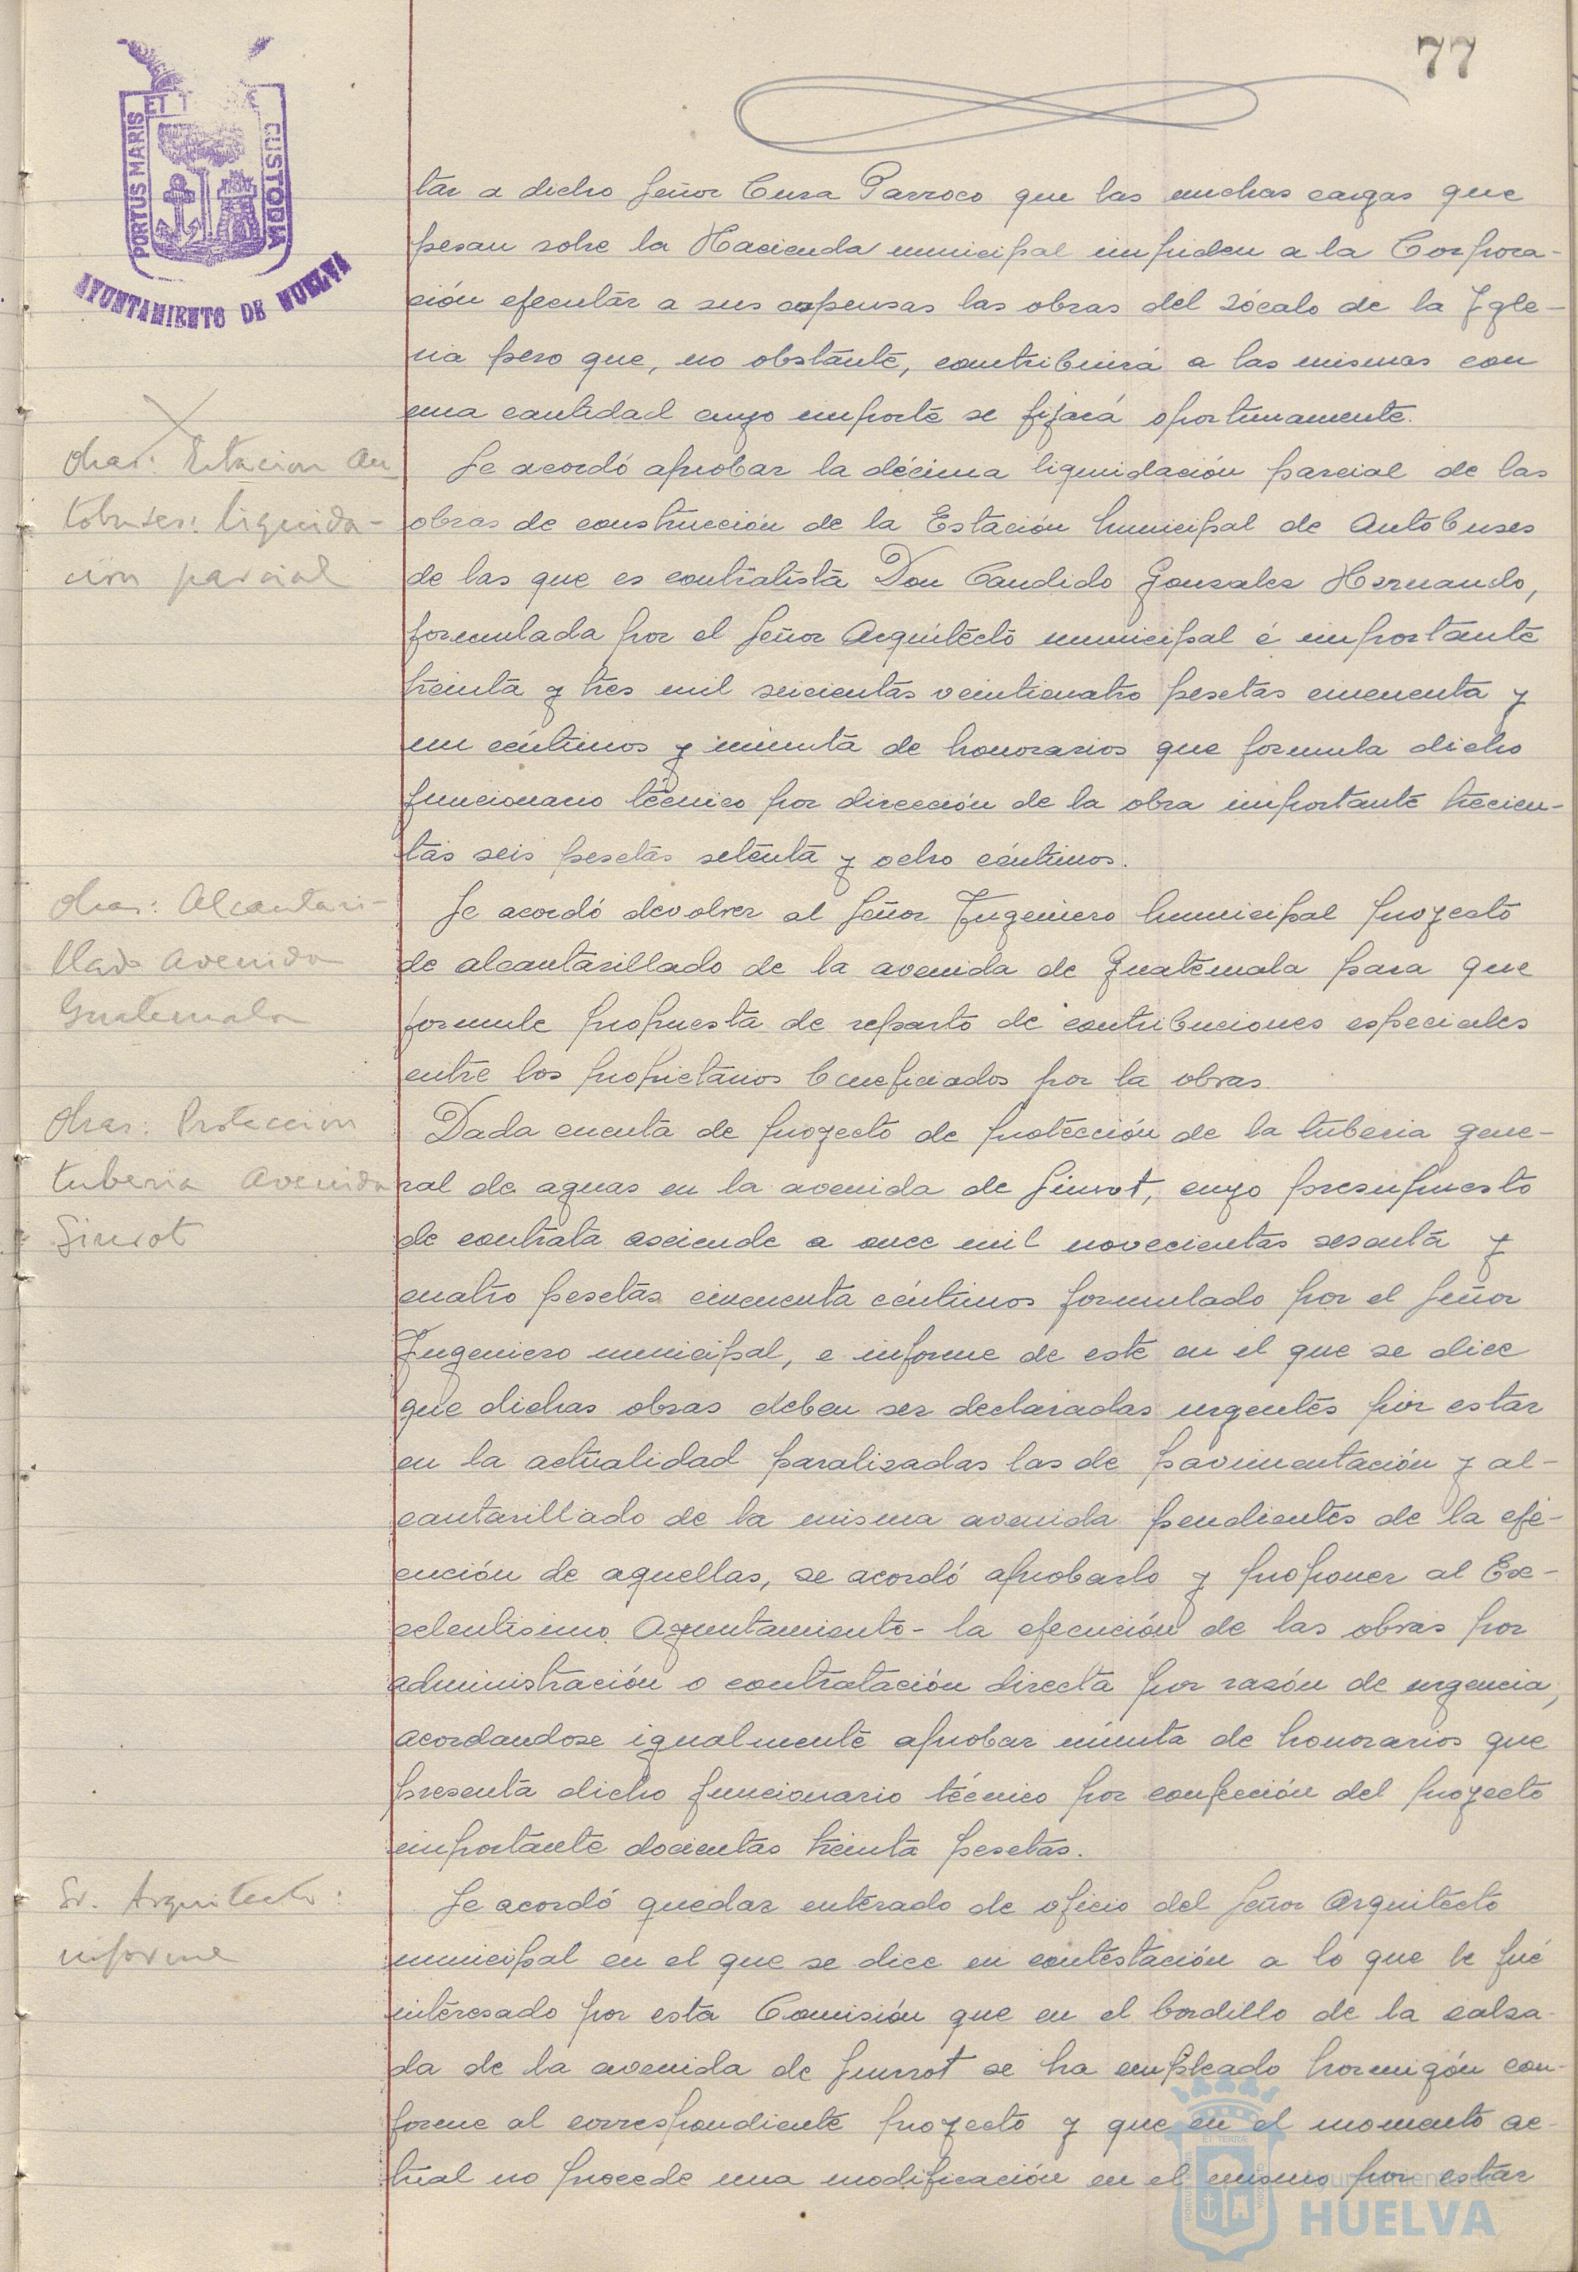 77
ET T
PORTUS MARIS
CUSTODIA
AYUNTAMIENTO DE HUELVA
tar a dicho Señor Cura Parroco que las muchas cargas que
pesan sobre la Hacienda municipal impiden a la Corpora-
ción efecutar a sus expensas las obras del zócalo de la Igle-
sia pero que, no obstante, contribuirá a las mismas con
una cantidad cuyo importe se fijará oportunamente.
Obras: Estacion Au
tobuses: liquida-
cion parcial
Se acordó aprobar la décima liquidación parcial de las
obras de construcción de la Estación Municipal de Autobuses
de las que es contratista Don Candido Gonzalez Hernando,
formulada por el Señor Arquitecto municipal é importante
treinta y tres mil seicientas veinticuatro pesetas cincuenta y
un céntimos y minuta de honorarios que formula dicho
funcionario técnico por dirección de la obra importante trecien-
tas seis pesetas setenta y ocho céntimos.
Obras: Alcantari-
llado Avenida
Guatemala
Se acordó devolver al Señor Ingeniero Municipal proyecto
de alcantarillado de la avenida de Guatemala para que
formule propuesta de reparto de contribuciones especiales
entre los propietarios beneficiados por la obras.
Obras: Proteccion
tuberia Avenida
Simrot
Dada cuenta de proyecto de protección de la tuberia gene-
ral de aguas en la avenida de Simrot, cuyo presupuesto
de contrata asciende a once mil novecientas sesenta y
cuatro pesetas cincuenta céntimos formulado por el Señor
Ingeniero municipal, e informe de este en el que se dice
que dichas obras deben ser declaradas urgentes por estar
en la actualidad paralizadas las de pavimentación y al-
cantarillado de la misma avenida pendientes de la efe-
cución de aquellas, se acordó aprobarlo y proponer al Ex-
celentisimo Ayuntamiento- la efecución de las obras por
administración o contratación directa por razón de urgencia,
acordandose igualmente aprobar minuta de honorarios que
presenta dicho funcionario técnico por confección del proyecto
importante docientas treinta pesetas.
Sr. Arquitecto:
informe
Se acordó quedar enterado de oficio del Señor Arquitecto
municipal en el que se dice en contestación a lo que le fué
interesado por esta Comisión que en el bordillo de la calza-
da de la avenida de Simrot se ha empleado hormigón con-
forme al correspondiente proyecto y que en el momento ac-
tual no procede una modificación en el mismo por estar
Ayuntamiento de
HUELVA